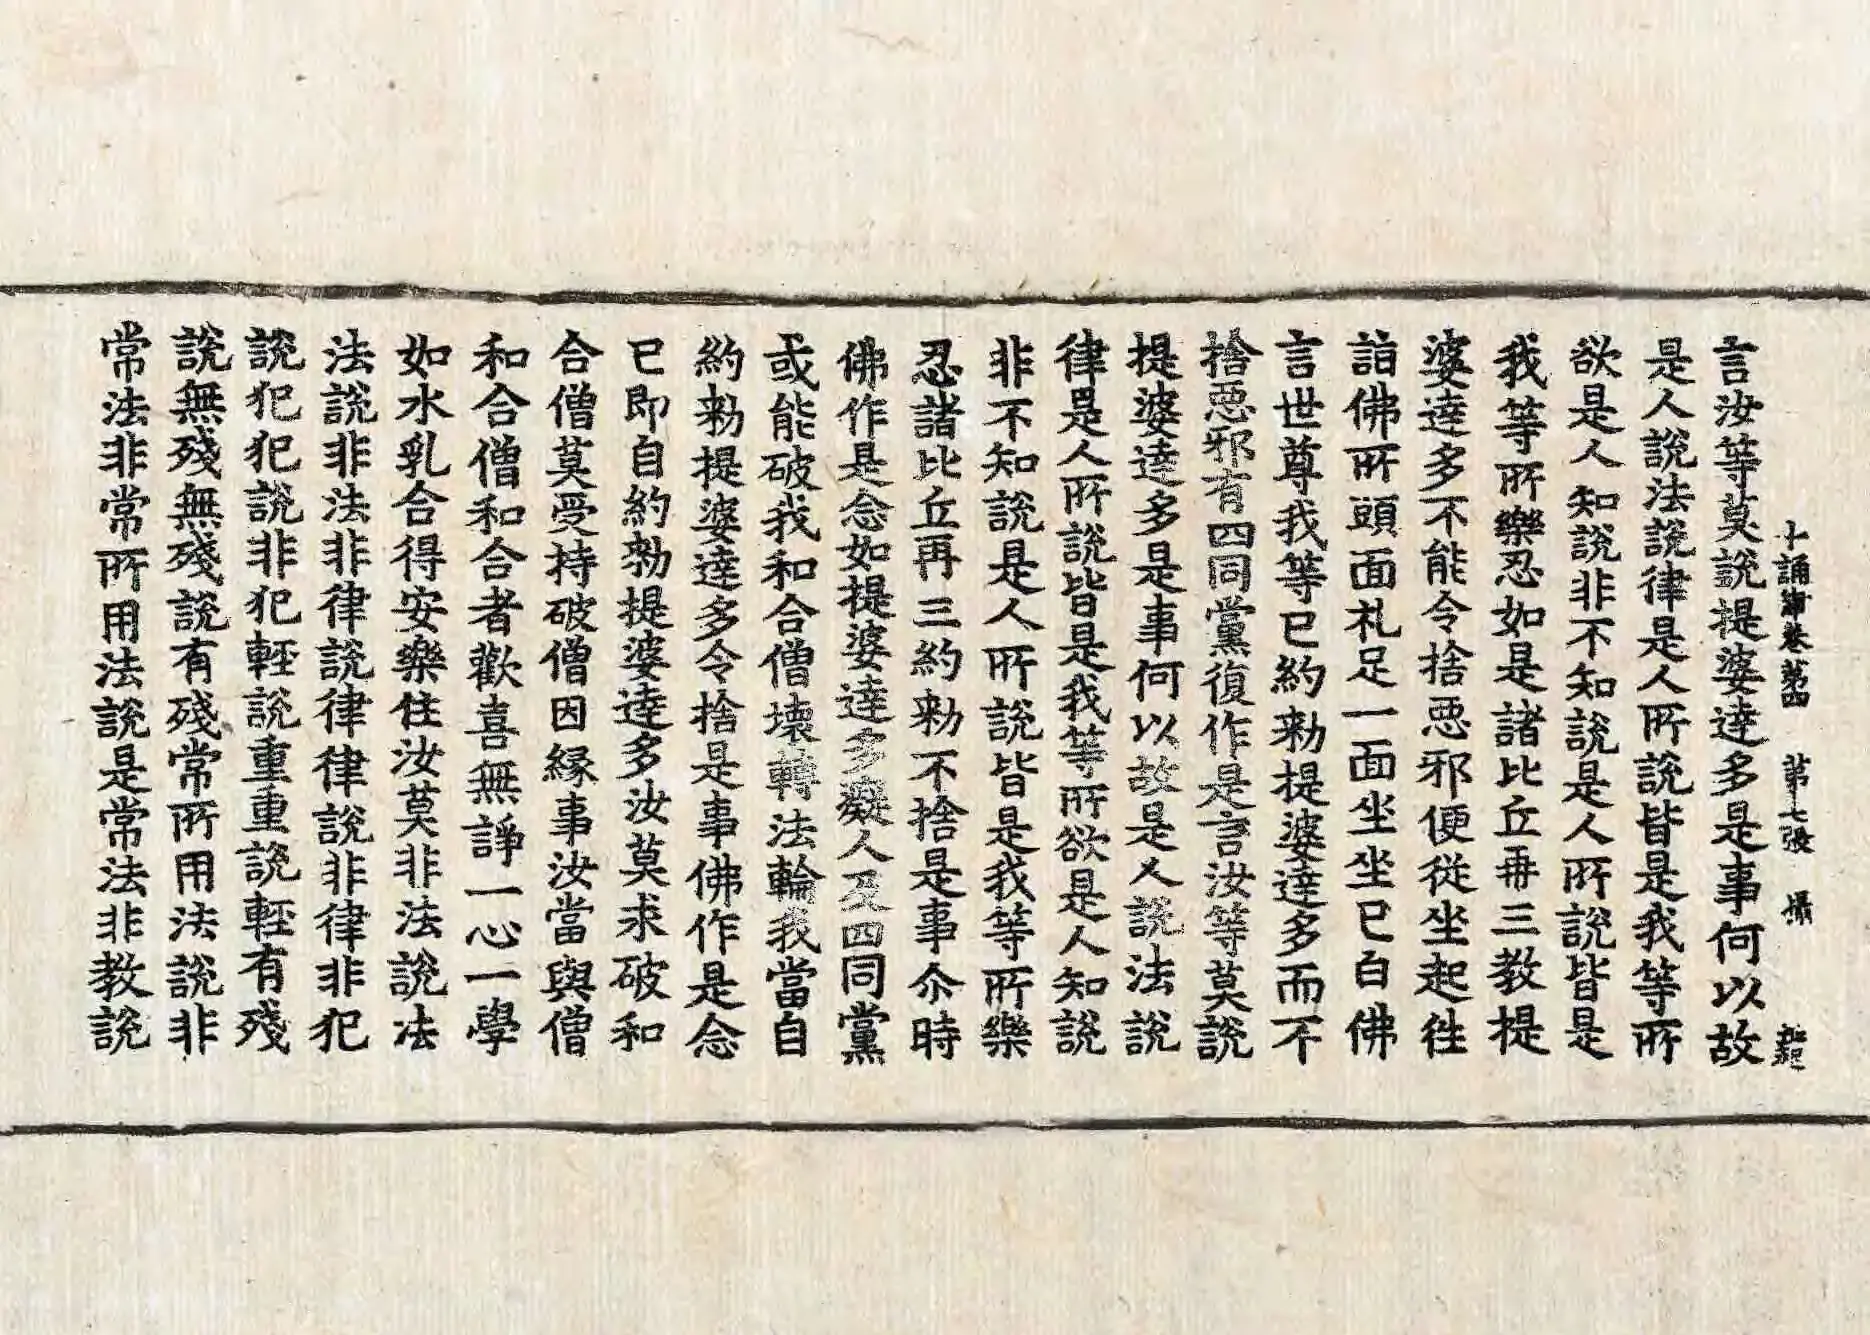 十誦律卷第四　第七張　攝
言汝等莫說提婆達多是事何以故
是人說法說律是人所說皆是我等所
欲是人知說非不知說是人所說皆是
我等所樂忍如是諸比丘再三教提
婆達多不能令捨惡邪便從坐起往
詣佛所頭面札足一面坐坐已白佛
言世尊我等已約勑提婆達多而不
捨惡邪有四同黨復作是言汝等莫說
提婆達多是事何以故是人說法說
律是人所說皆是我等所欲是人知說
非不知說是人所說皆是我等所樂
忍諸比丘再三約勑不捨是事尒時
佛作是念如提婆達多癡人及四同黨
或能破我和合僧壞轉法輪我當自
約勑提婆達多令捨是事佛作是念
已即自約勑提婆達多汝莫求破和
合僧莫受持破僧因緣事汝當與僧
和合僧和合者歡喜無諍一心一學
如水乳合得安樂住汝莫非法說法
法說非法非律說律律說非律非犯
說犯犯說非犯輕說重重說輕有殘
說無殘無殘說有殘常所用法說非
常法非常所用法說是常法非教說